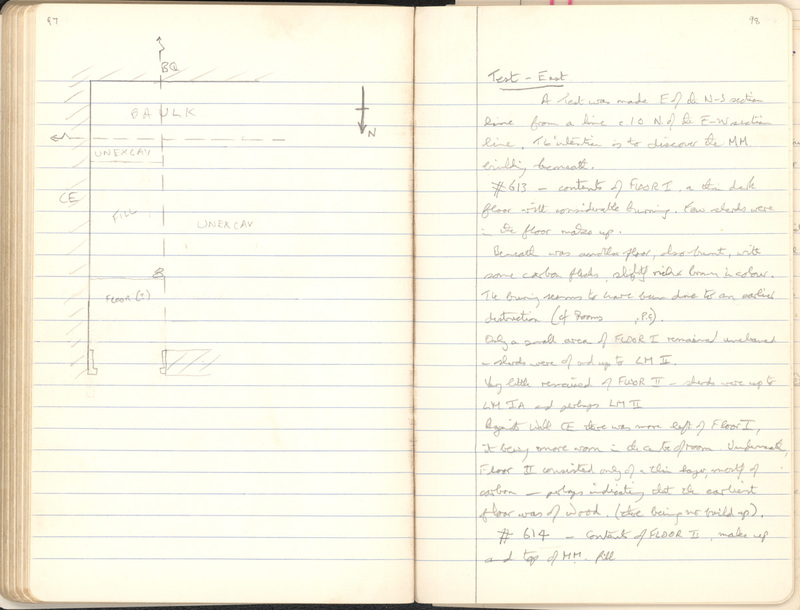 97
BQ
BAULK
N
UNEXCAV
CE
FILL
UNEXCAV
FLOOR (?)
98
Test - East
A test was made E of the N-S section
line from a line c. 1.0 N. of the E-W section
line. The intention is to discover the MM
building beneath.
#613 – contents of FLOOR I. a thin dark
floor with considerable burning. Few sherds were
in the floor make up.
Beneath was another floor, also burnt, with
some carbon flecks, slightly brown in colour.
The burning seems to have been done to an earlier
destruction (cf Rooms , P.5).
Only a small area of FLOOR I remained
– sherds were of and up to LM II.
Very little remained of FLOOR II – sherds were up to
LM IA and perhaps LM II
Against Wall CE there was more left of Floor I,
it being more worn in the centre of room. Underneath,
Floor II consisted only of a thin layer, mostly of
carbon – perhaps indicating that the earliest
floor was of wood. (there being no build up).
# 614 – Contents of FLOOR II, make up
and top of MM. fill